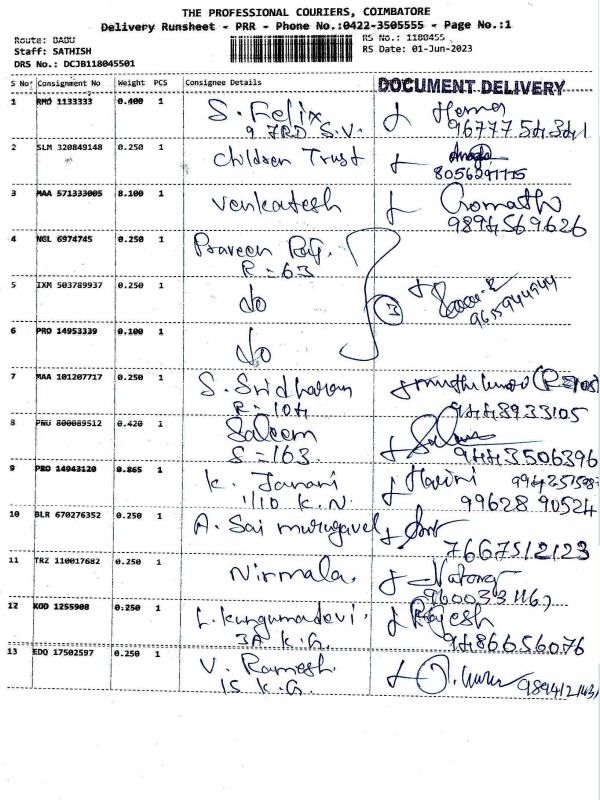 THE PROFESSIONAL COURIERS, COIMBATORE
Delivery Runsheet - PRR - Phone No.:0422-3505555 - Page No.:1
Route: BABU
Staff: SATHISH
DRS No.: DCJB118045501
RS No.: 1180455
RS Date: 01-Jun-2023
S No Consignment No Weight PCS Consignee Details DOCUMENT DELIVERY
1 RMO 1133333 0.400 1 S. Felix
9 7RD S.V. 9677754341
2 SLM 320849148 0.250 1 Children Trust
8056291115
3 MAA 571333005 8.100 1 Venkatesh Gomathi
9894569626
4 NGL 6974745 0.250 1 Praveen Raj.
R = 63
5 IXM 503789937 0.250 1 do 3
9655944944
6 PRO 14953339 0.100 1 do
7 MAA 101207717 0.250 1 S. Sridharan
R = 104 9448933105
8 PNU 800089512 0.420 1 Saleem
S = 163. 9443506396
9 PRO 14943120 0.865 1 K. Janani Harini
1/10 K.N. 99628 90524
10 BLR 670276352 0.250 1 A. Sai Murugavel
7667512123
11 TRZ 110017682 0.250 1 Nirmala.
12 KOD 1255908 0.250 1 L. Kungumadevi. Rajesh
3A K.G. 9486656076
13 EDO 17502597 0.250 1 V. Ramesh
15 K.G.